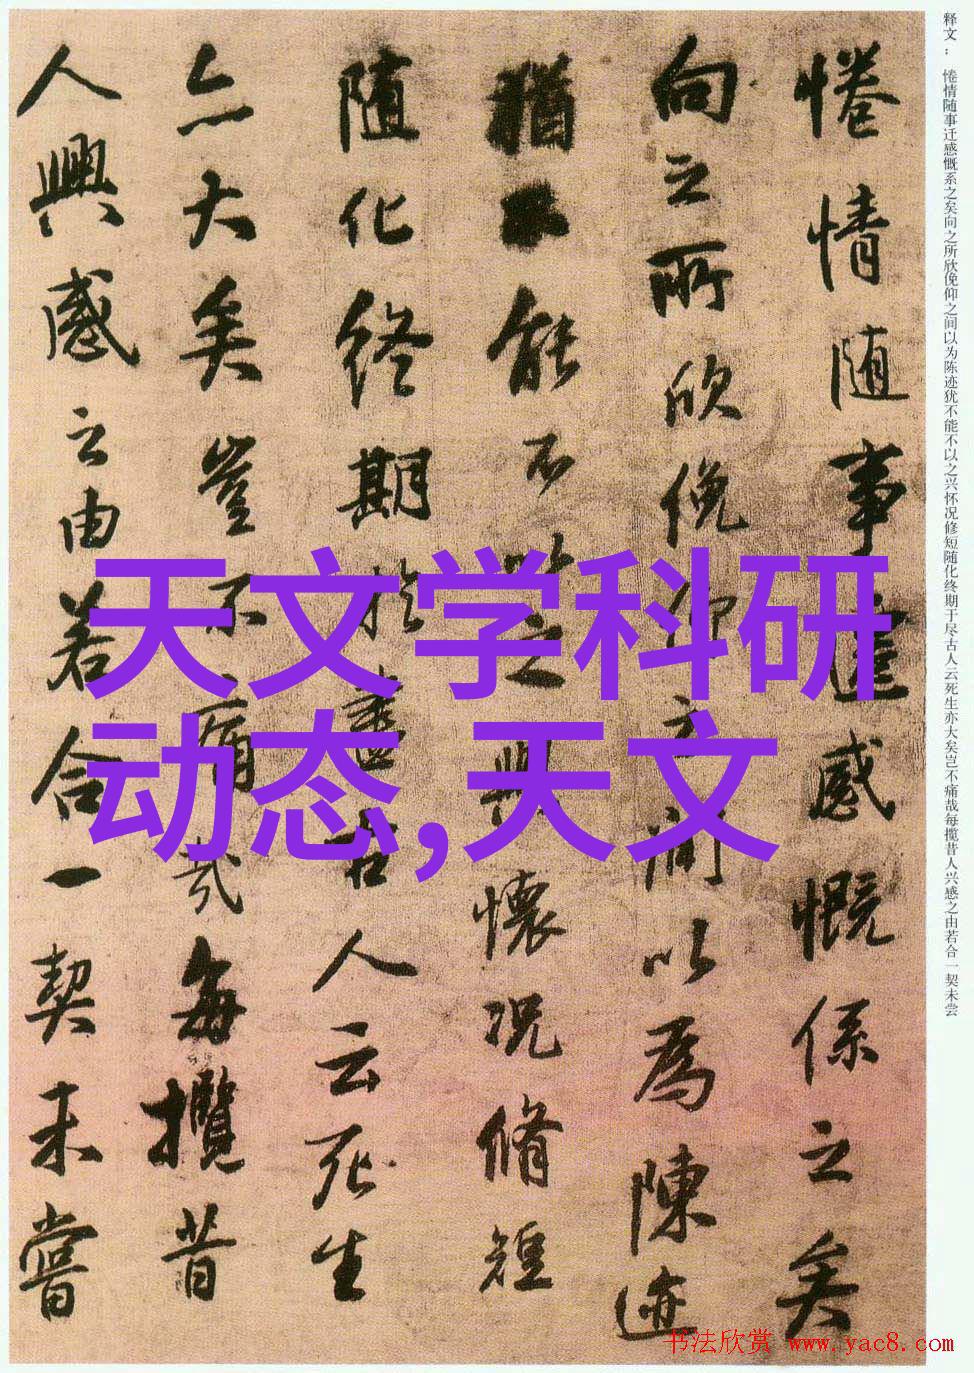 释文：惓情随事迁感慨系之矣向之所欣俛仰之间以为陈迹犹不能不以之兴怀况修短随化终期于尽古人云死生亦大矣岂不痛哉每揽昔人兴感之由若合一契未尝
惓情随事遷感慨係之矣
向之所欣俛仰之間以為陳迹
猶不能不以之興懷況脩短
随化終期於盡古人云死生
亦大矣豈不痛哉每攬昔
人興感之由若合一契未嘗
天文学科研
动态,天文
书法欣赏 www.yac8.com